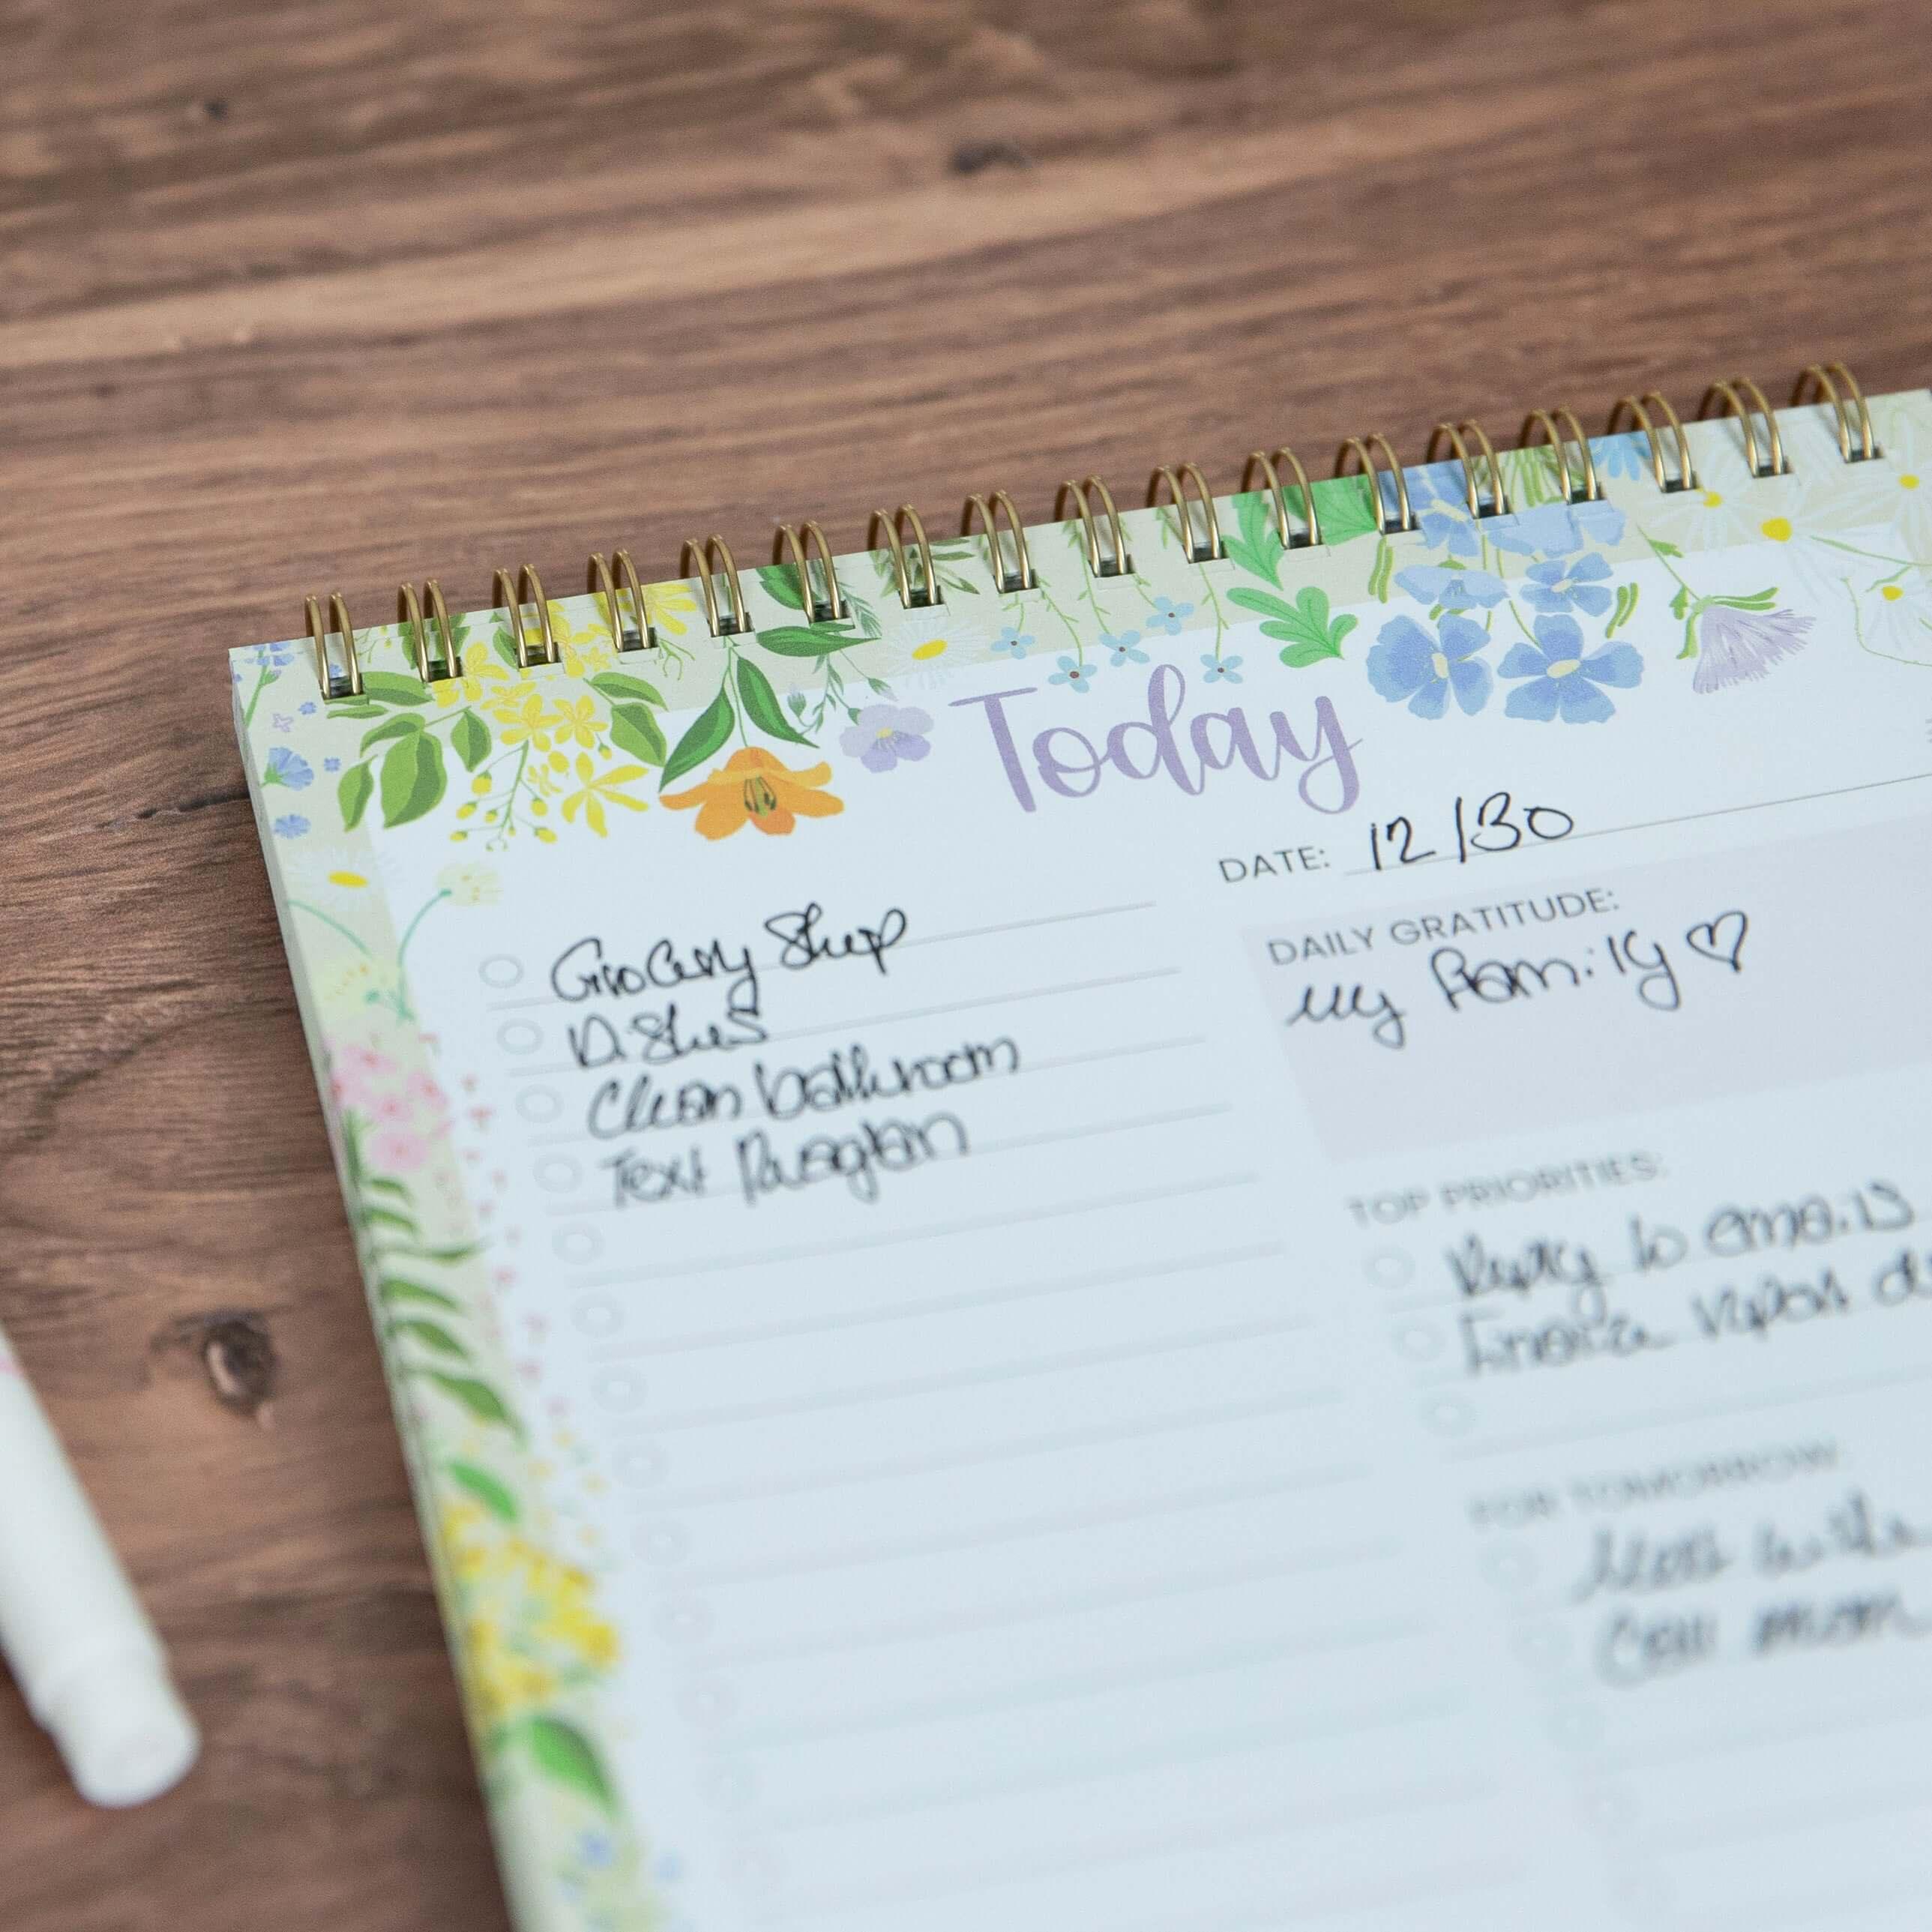 Today
DATE: 12/30
Grocery Shop
Dishes
Clean bathroom
Text
DAILY GRATITUDE:
My Family ♡
TOP PRIORITIES:
Reply to emails
report
FOR TOMORROW:
Call mom